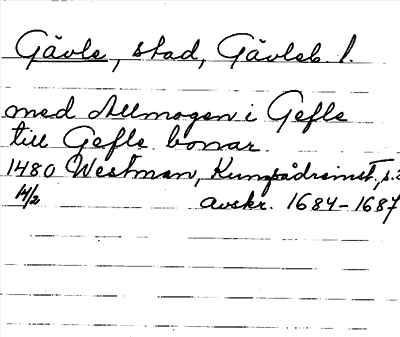 Gävle, stad, Gävleb. l.
med Allmogen i Gefle
till Gefle boxar
1480 Westman, Kungsådreinst., s.
14/2 avskr. 1684-1687